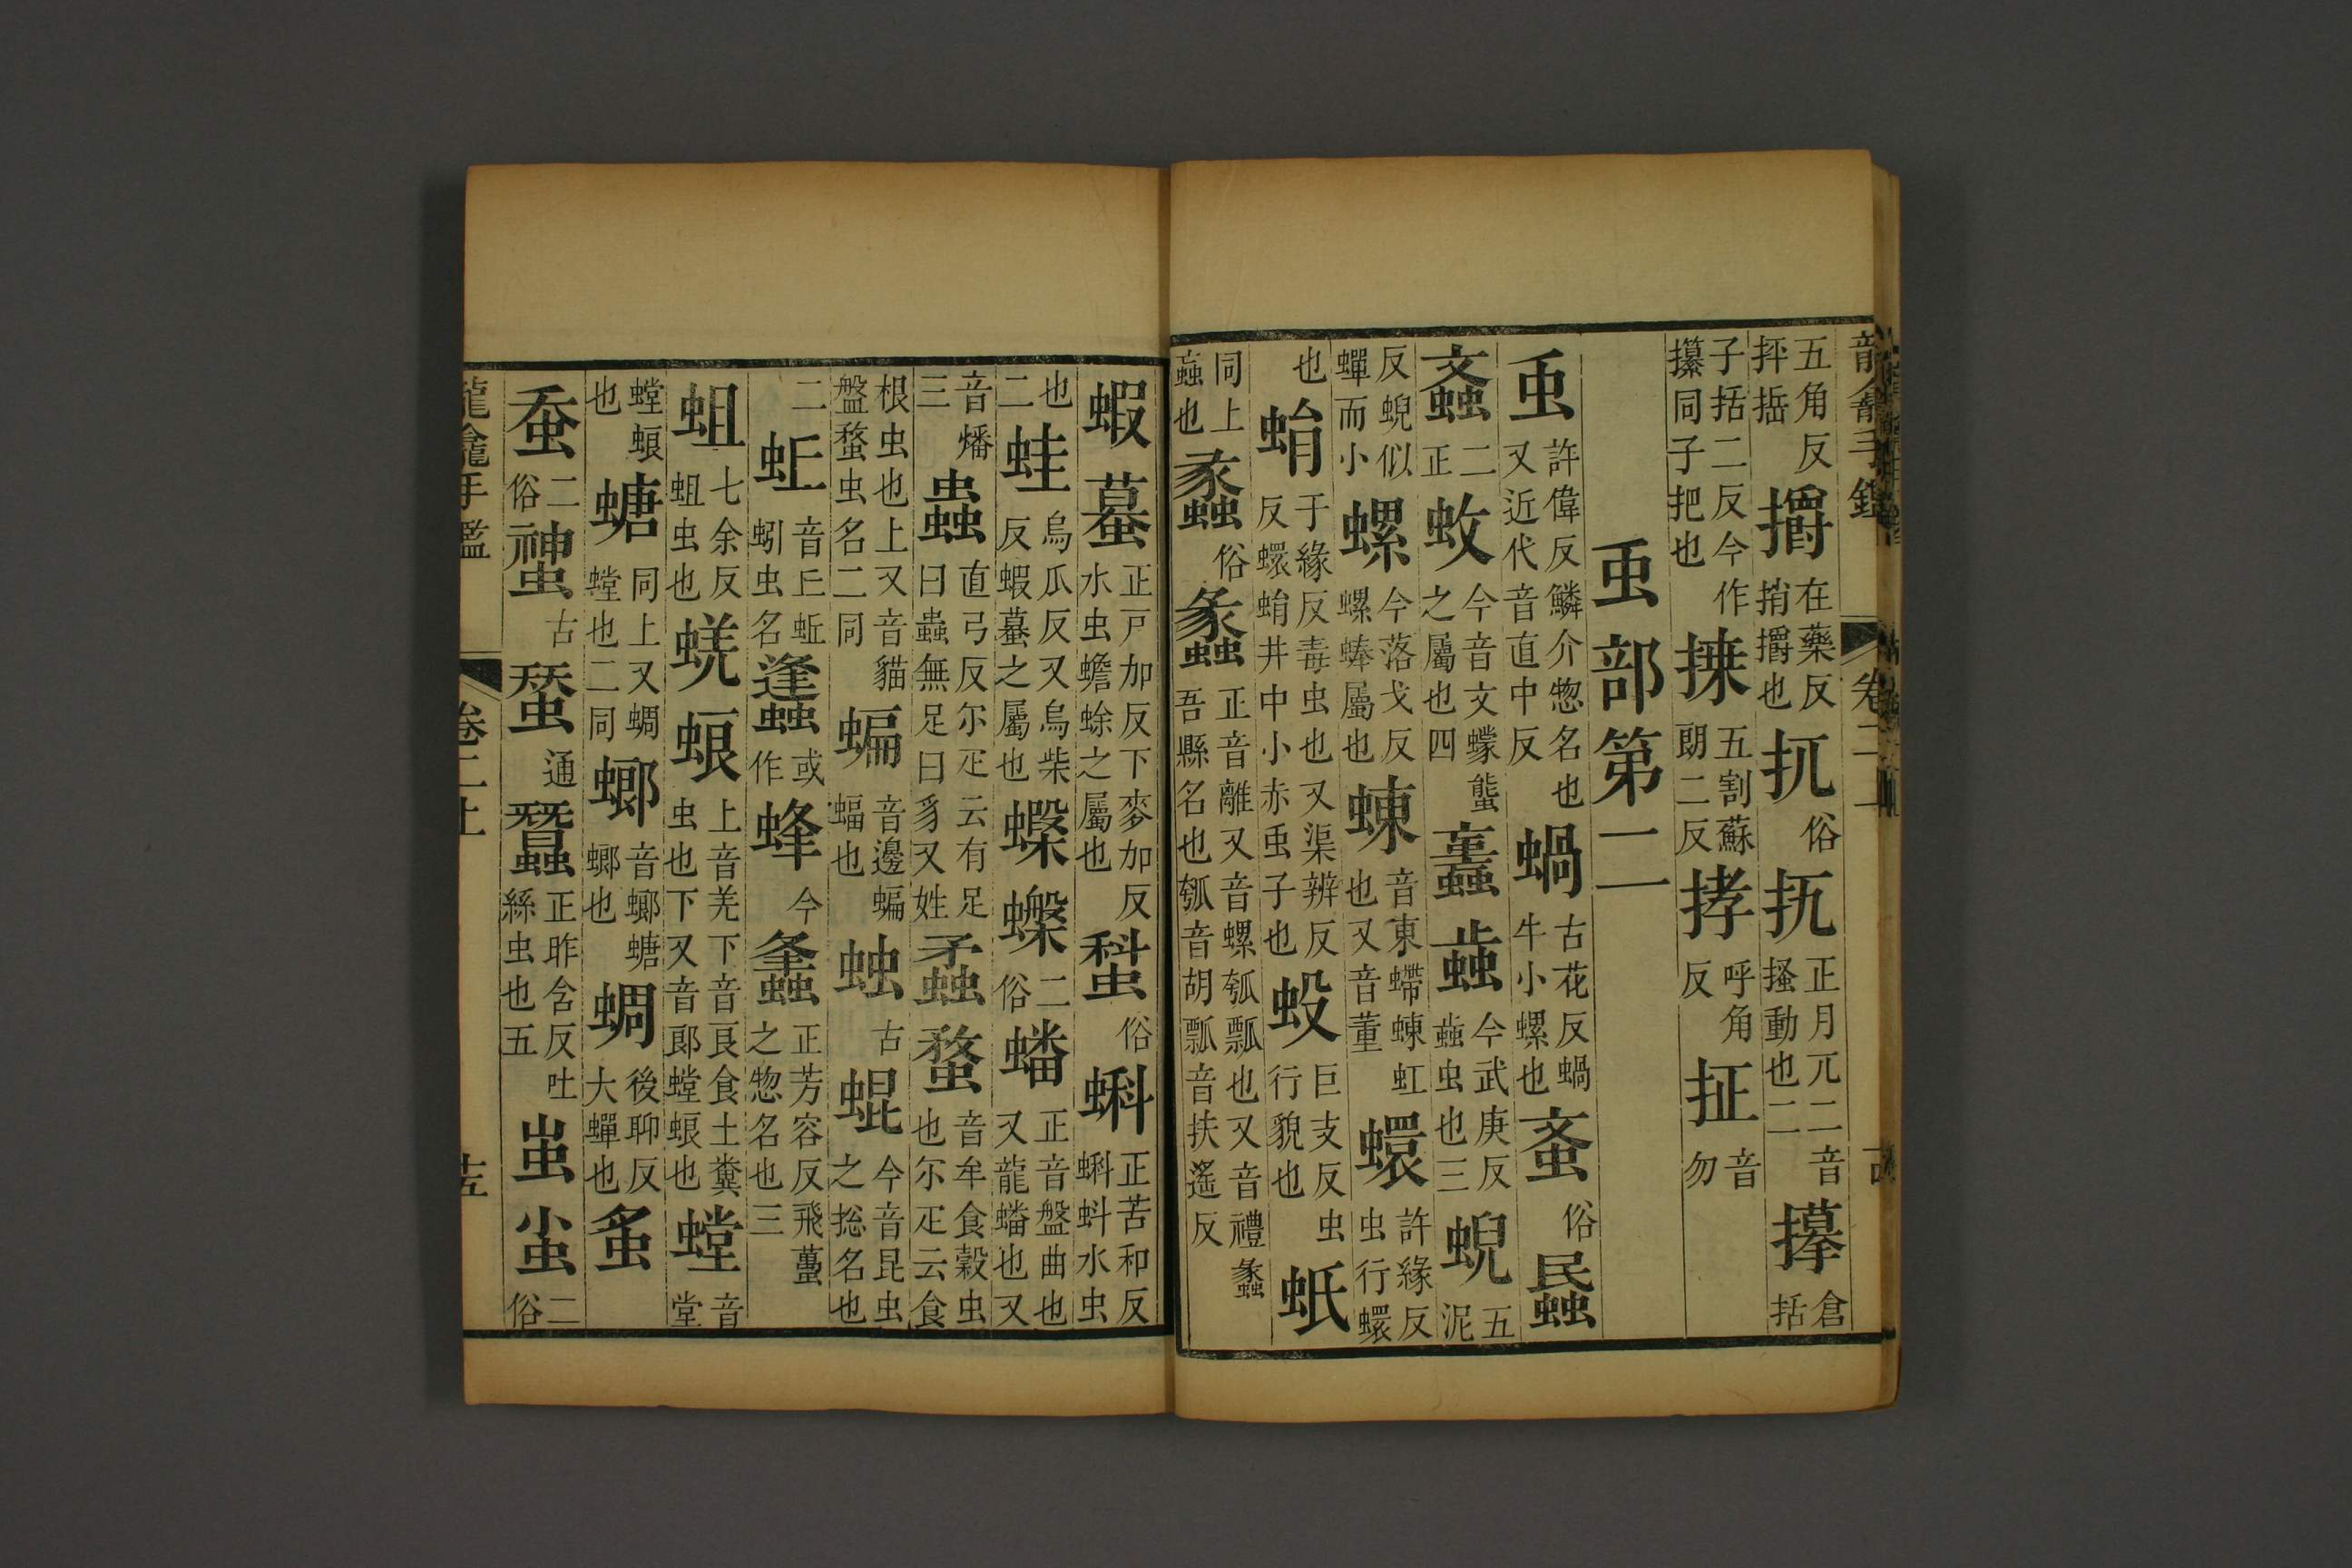 龍龕手鑑 卷二
五角反抨㨋𢷤在藥反捎𢷤也扤俗㧋正月兀二音搔動也二𢹂倉括
子括二反今作攥同子把也㨷五割蘇朗二反㧅呼角反抸音勿
䖝部第二
䖝許偉反鱗介惣名也又近代音直中反蝸古花反蝸牛小螺也䖟俗𧖓
𧖓正二蚊今音文蠓䗽之屬也四䖟今武庚反蝱虫也三蜺五泥
反蜺似蟬而小螺今落戈反螺蜯屬也蝀音東螮蝀虹也又音董蠉許緣反虫行蠉
也蜎于緣反毒虫也又渠辨反蠉蜎井中小赤䖝子也𧉪巨支反虫行貌也蚔
同上蝱也𧕯俗蠡正音離又音螺瓠瓢也又音禮蠡吾縣名也瓠音胡瓢音扶遙反
蝦蟇正戸加反下麥加反水虫蟾蜍之屬也俗蝌正苦和反蝌蚪水虫
也二蛙烏瓜反又烏柴反蝦蟇之屬也二俗蟠正音盤曲也又龍蟠也又
音燔三蟲直弓反尓疋云有足曰蟲無足曰豸又姓蟊音牟食穀虫也尓疋云食
根虫也上又音貓盤蝥虫名二同蝙音邊蝙蝠也䖵古蜫今音昆虫之捴名也
二音丘蚯蚓虫名或作蜂今正芳容反飛䘍之惣名也三
蛆七余反蛆虫也蜣蜋上音羌下音良食土糞虫也下又音郎螳蜋也螳音堂
螳蜋也螗同上又蜩螗也二同螂音螂螗螂也蜩後聊反大蟬也
蚕二俗古通蠶正昨含反吐絲虫也五蚩二俗
龍龕手鑑 卷二上